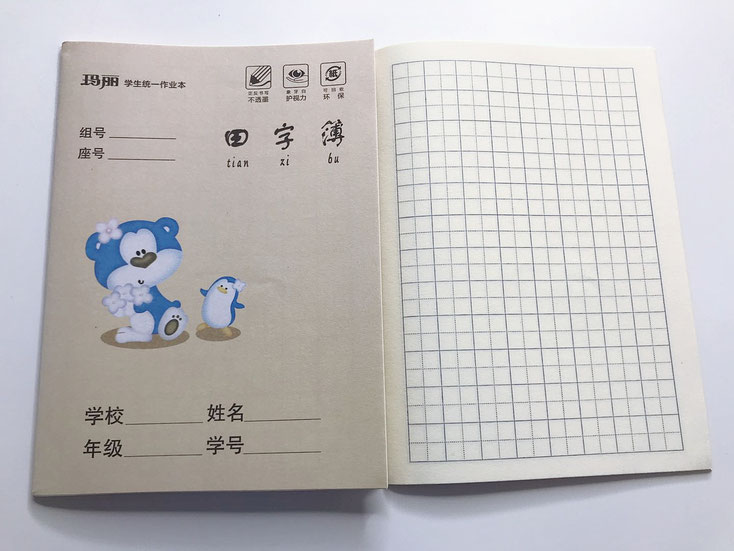 玛丽 学生统一作业本
正反书写 象牙白 可回收
不透墨 护视力 环保
组号
座号
田字簿
tian zi bu
学校 姓名
年级 学号